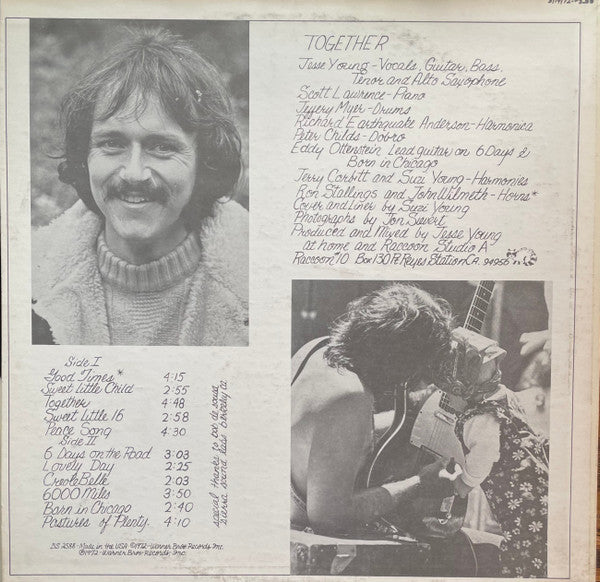 TOGETHER
Jesse Young - Vocals, Guitar, Bass,
Tenor and Alto Saxophone
Scott Lawrence - Piano
Jeffery Myer - Drums
Richard Earthquake Anderson - Harmonica
Peter Childs - Dobro
Eddy Ottenstein Lead guitar on 6 Days &
Born in Chicago
Jerry Corbitt and Suzi Young - Harmonies
Ron Stallings and John Wilmeth - Horns*
Cover and Liner by Suzi Young
Photographs by Jon Sievert
Produced and Mixed by Jesse Young
at home and Raccoon Studio A
Raccoon #10 Box 130 Pt. Reyes Station CA. 94956
Side I
Good Times* 4:15
Sweet Little Child 2:55
Together 4:48
Sweet Little 16 2:58
Peace Song 4:30
Side II
6 Days on the Road 3:03
Lovely Day 2:25
Creole Belle 2:03
6000 Miles 3:50
Born in Chicago 2:40
Pastures of Plenty. 4:10
special thanks to bob de sousa
sierra sound labs berkeley ca
BS 2588 - Made in the USA ©1972 - Warner Bros. Records, Inc.
℗1972 - Warner Bros. Records, Inc.